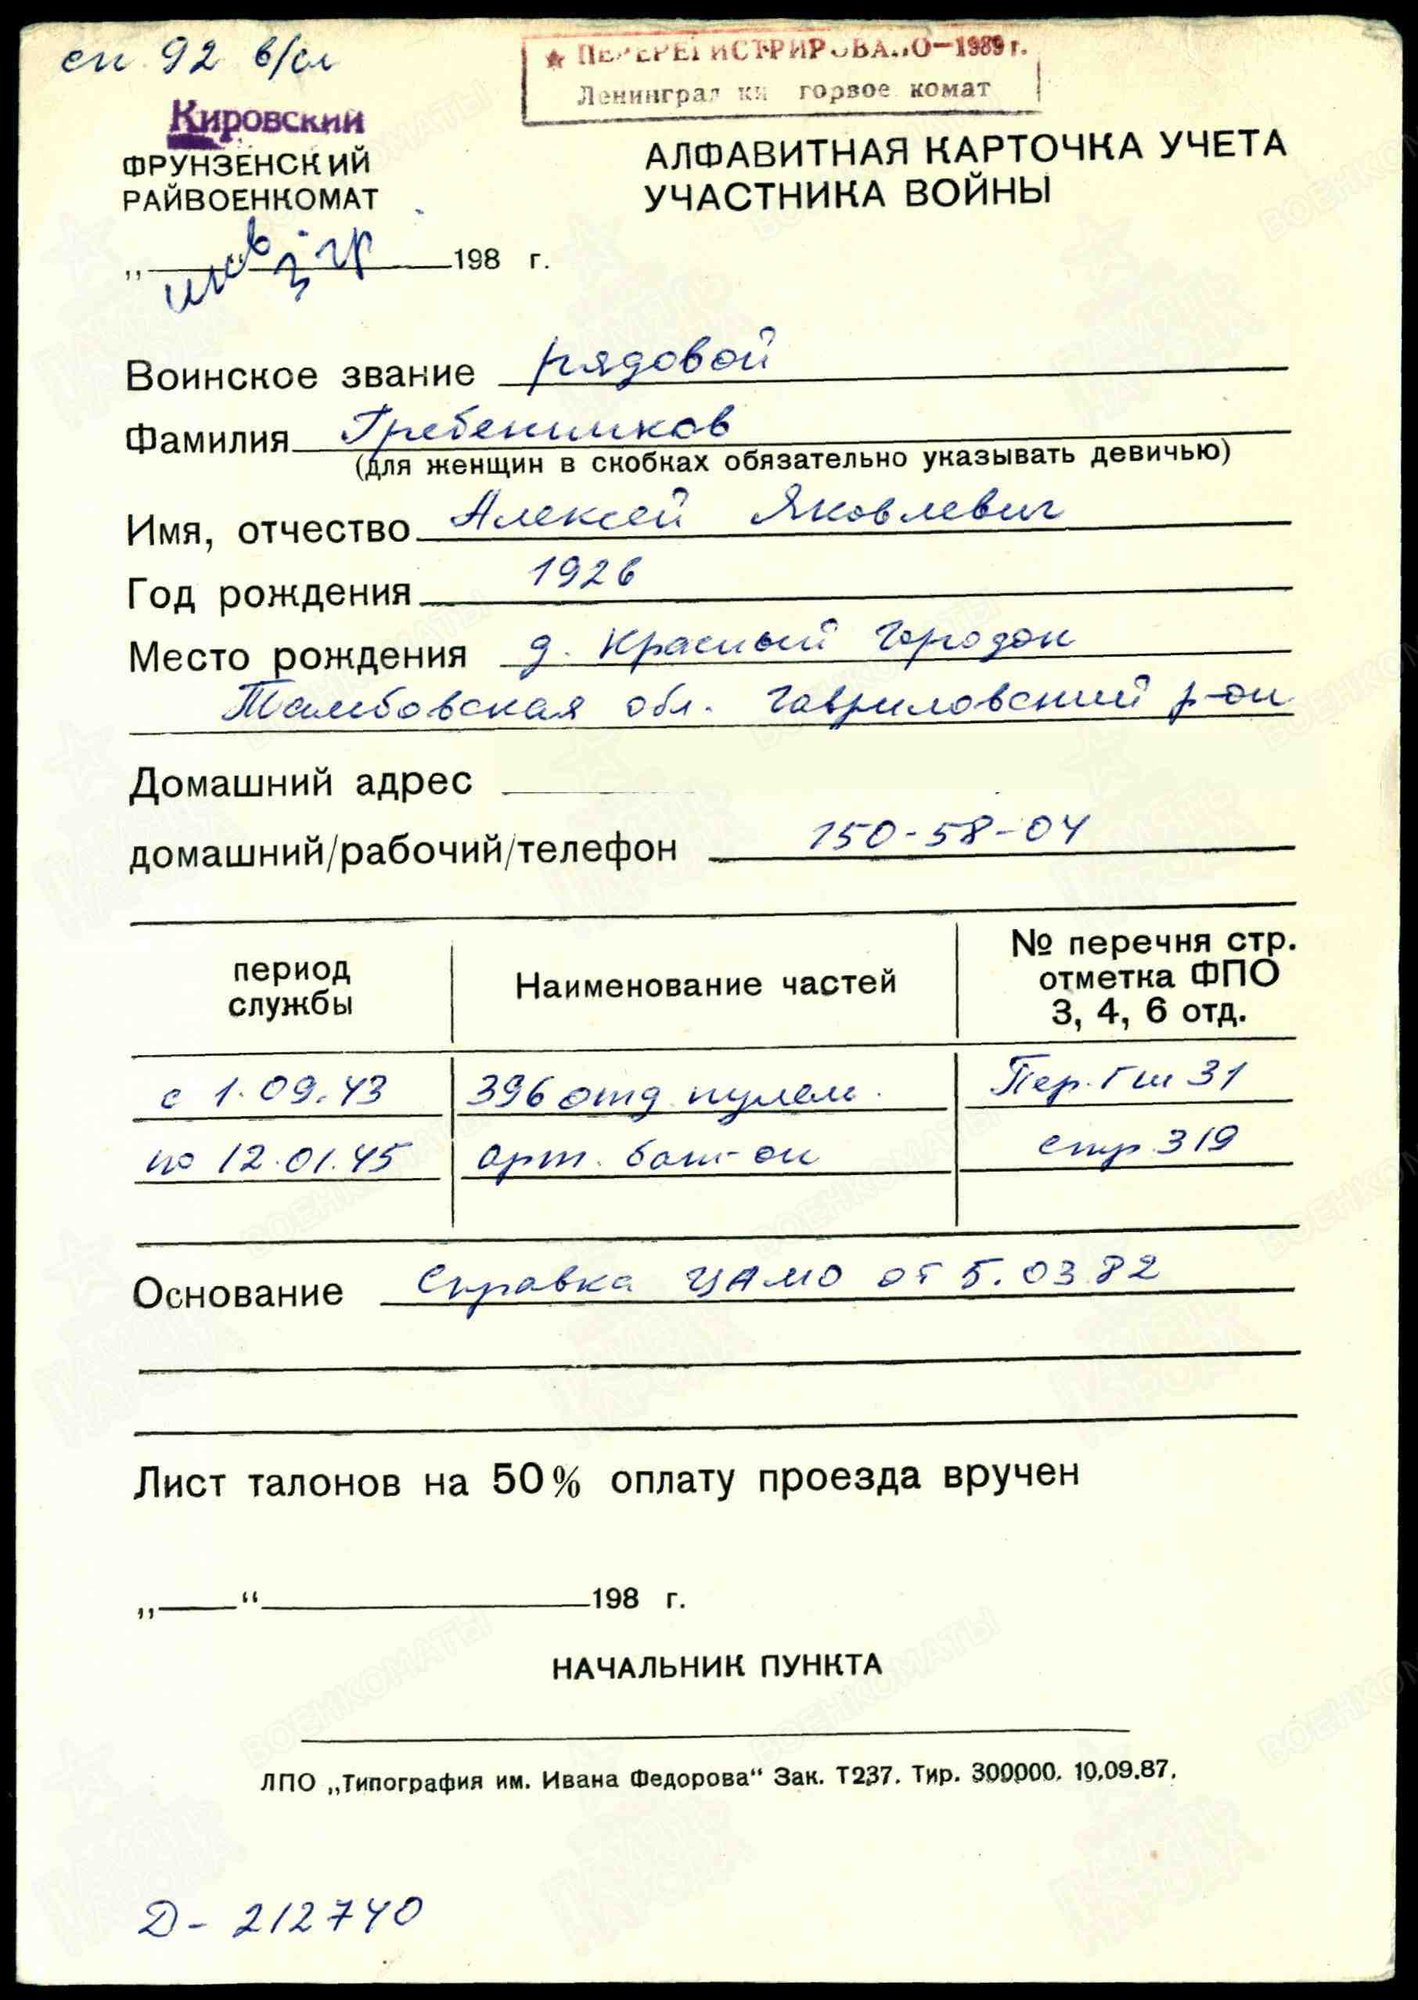 сп 92 в/сл
★ ПЕРЕРЕГИСТРИРОВАНО—1989 г.
Ленинград ки горвое комат
Кировский
ФРУНЗЕНСКИЙ
РАЙВОЕНКОМАТ
АЛФАВИТНАЯ КАРТОЧКА УЧЕТА
УЧАСТНИКА ВОЙНЫ
инв 3 гр
„ “ 198 г.
Воинское звание рядовой
Фамилия Гребенников
(для женщин в скобках обязательно указывать девичью)
Имя, отчество Алексей Яковлевич
Год рождения 1926
Место рождения д. Красный Городок
Тамбовская обл. Гавриловский р-он
Домашний адрес
домашний/рабочий/телефон 150-58-04
период службы
Наименование частей
№ перечня стр. отметка ФПО 3, 4, 6 отд.
с 1.09.43 396 отд пулем. Пер. Гш 31
по 12.01.45 арт. бат-он стр 319
Основание Справка ЦАМО от 5.03.82
Лист талонов на 50% оплату проезда вручен
„ “ 198 г.
НАЧАЛЬНИК ПУНКТА
ЛПО „Типография им. Ивана Федорова“ Зак. Т237. Тир. 300000. 10.09.87.
Д- 212740